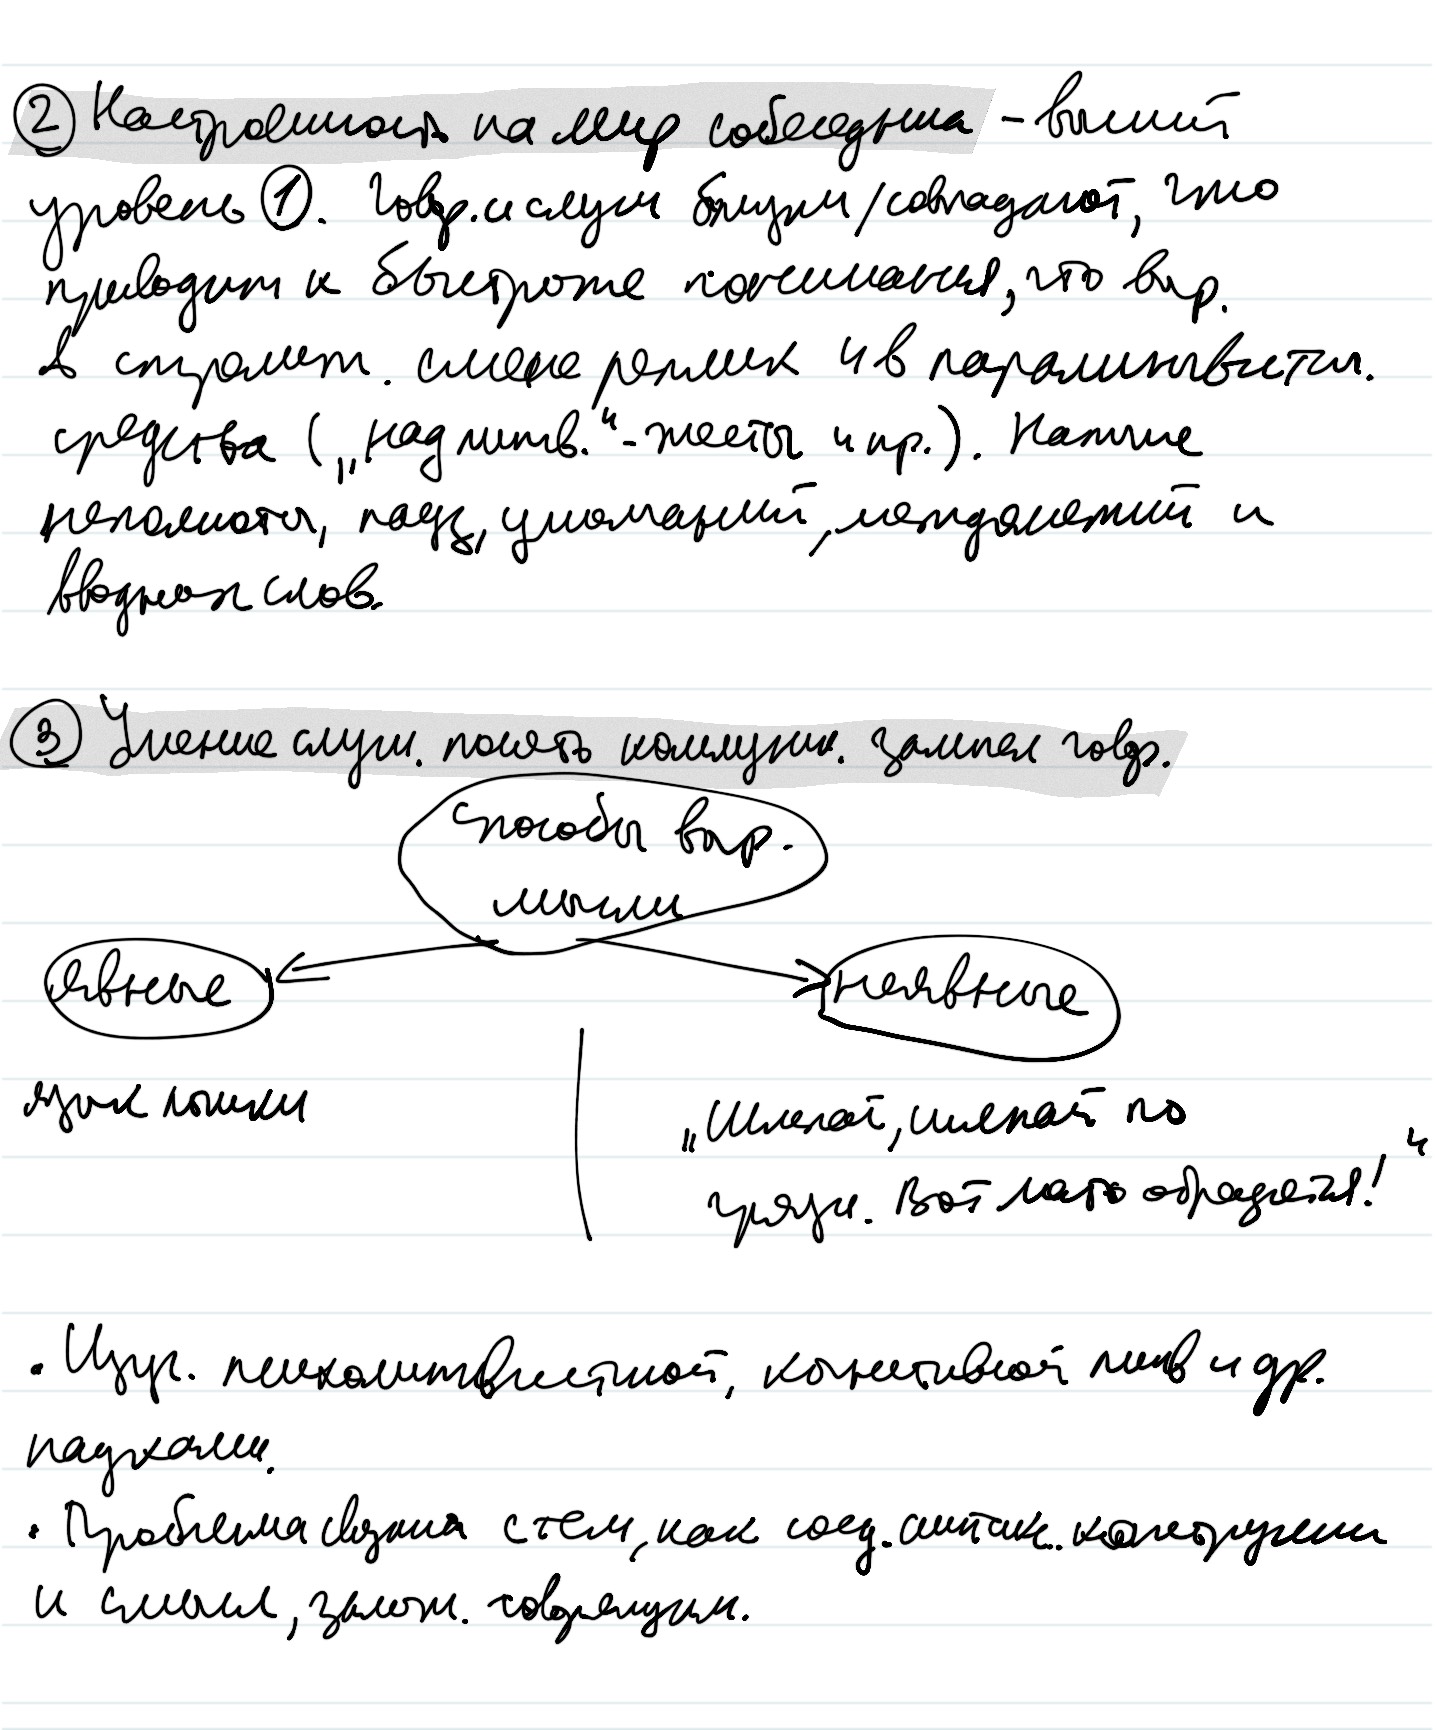 ② Настроенность на мир собеседника – высший
уровень ①. Говр. и слуш близки/совпадают, что
приводит к быстроте понимания, что выр.
в стремит. смене реплик и в паралингвистич.
средства („надлингв.“ - жесты и пр.). Наличие
неполноты, пауз, умолчаний, междометий и
вводных слов.
③ Умение слуш. понять коммуник. замысел говр.
способы выр.
мысли
явные
неявные
язык
„Шлепай, шлепай по
грязи. Вот мать обрадуется!“
· Изуч. психолингвистикой, когнитивной лингв и др.
науками.
· Проблема связана с тем, как соед. синтак. конструкции
и смысл, залож. говорящим.